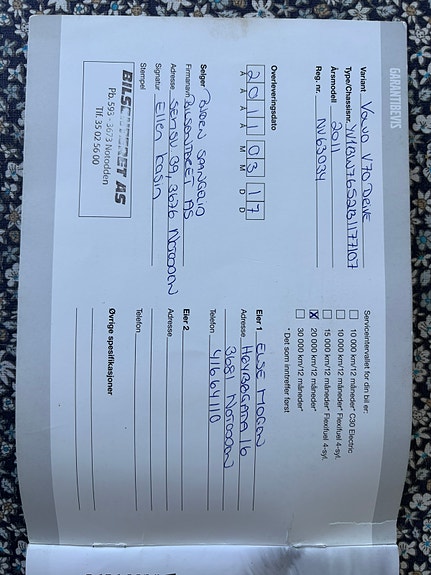 GARANTIBEVIS
Variant VOLVO V70 DRIVE
Type/Chassisnr.
Årsmodell 2011
Reg. nr. NV63034
Overleveringsdato
2 0 1 1 0 3 1 7
Å Å Å Å M M D D
Selger BJØRN
Firmanavn BILSENTERET AS
Adresse 3676 NOTODDEN
Signatur Ellen
Stempel
BILSENTERET AS
Pb. 593 3673 Notodden
Tlf. 35 02 56 00
Serviceintervallet for din bil er:
10 000 km/12 måneder* C30 Electric
10 000 km/12 måneder* Flexifuel 4-syl.
15 000 km/12 måneder* Flexifuel 4-syl.
X 20 000 km/12 måneder*
30 000 km/12 måneder*
* Det som inntreffer først
Eier 1 ELSE MOGEN
Adresse HØYBØGATA 16
3681 NOTODDEN
Telefon 41664110
Eier 2
Adresse
Telefon
Øvrige spesifikasjoner